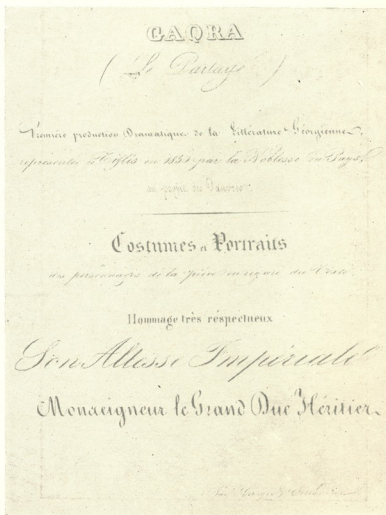 GAQRA
(Le Partage)
Première production Dramatique de la Littérature Géorgienne,
représentée à Tiflis en 18 par la Noblesse du Pays,
au profit des Pauvres.
Costumes et Portraits
des personnages de la pièce en regard du Texte.
Hommage très réspectueux
Son Altesse Impériale
Monseigneur le Grand Duc Héritier